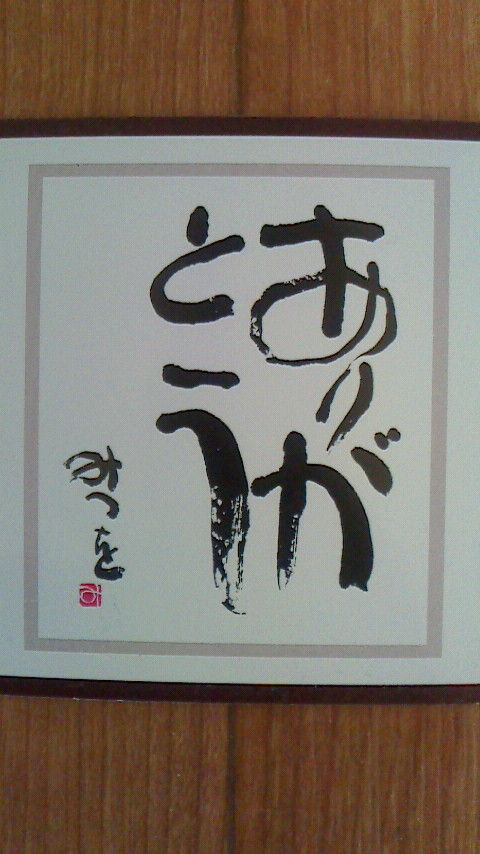 ありが
とう
みつを
み